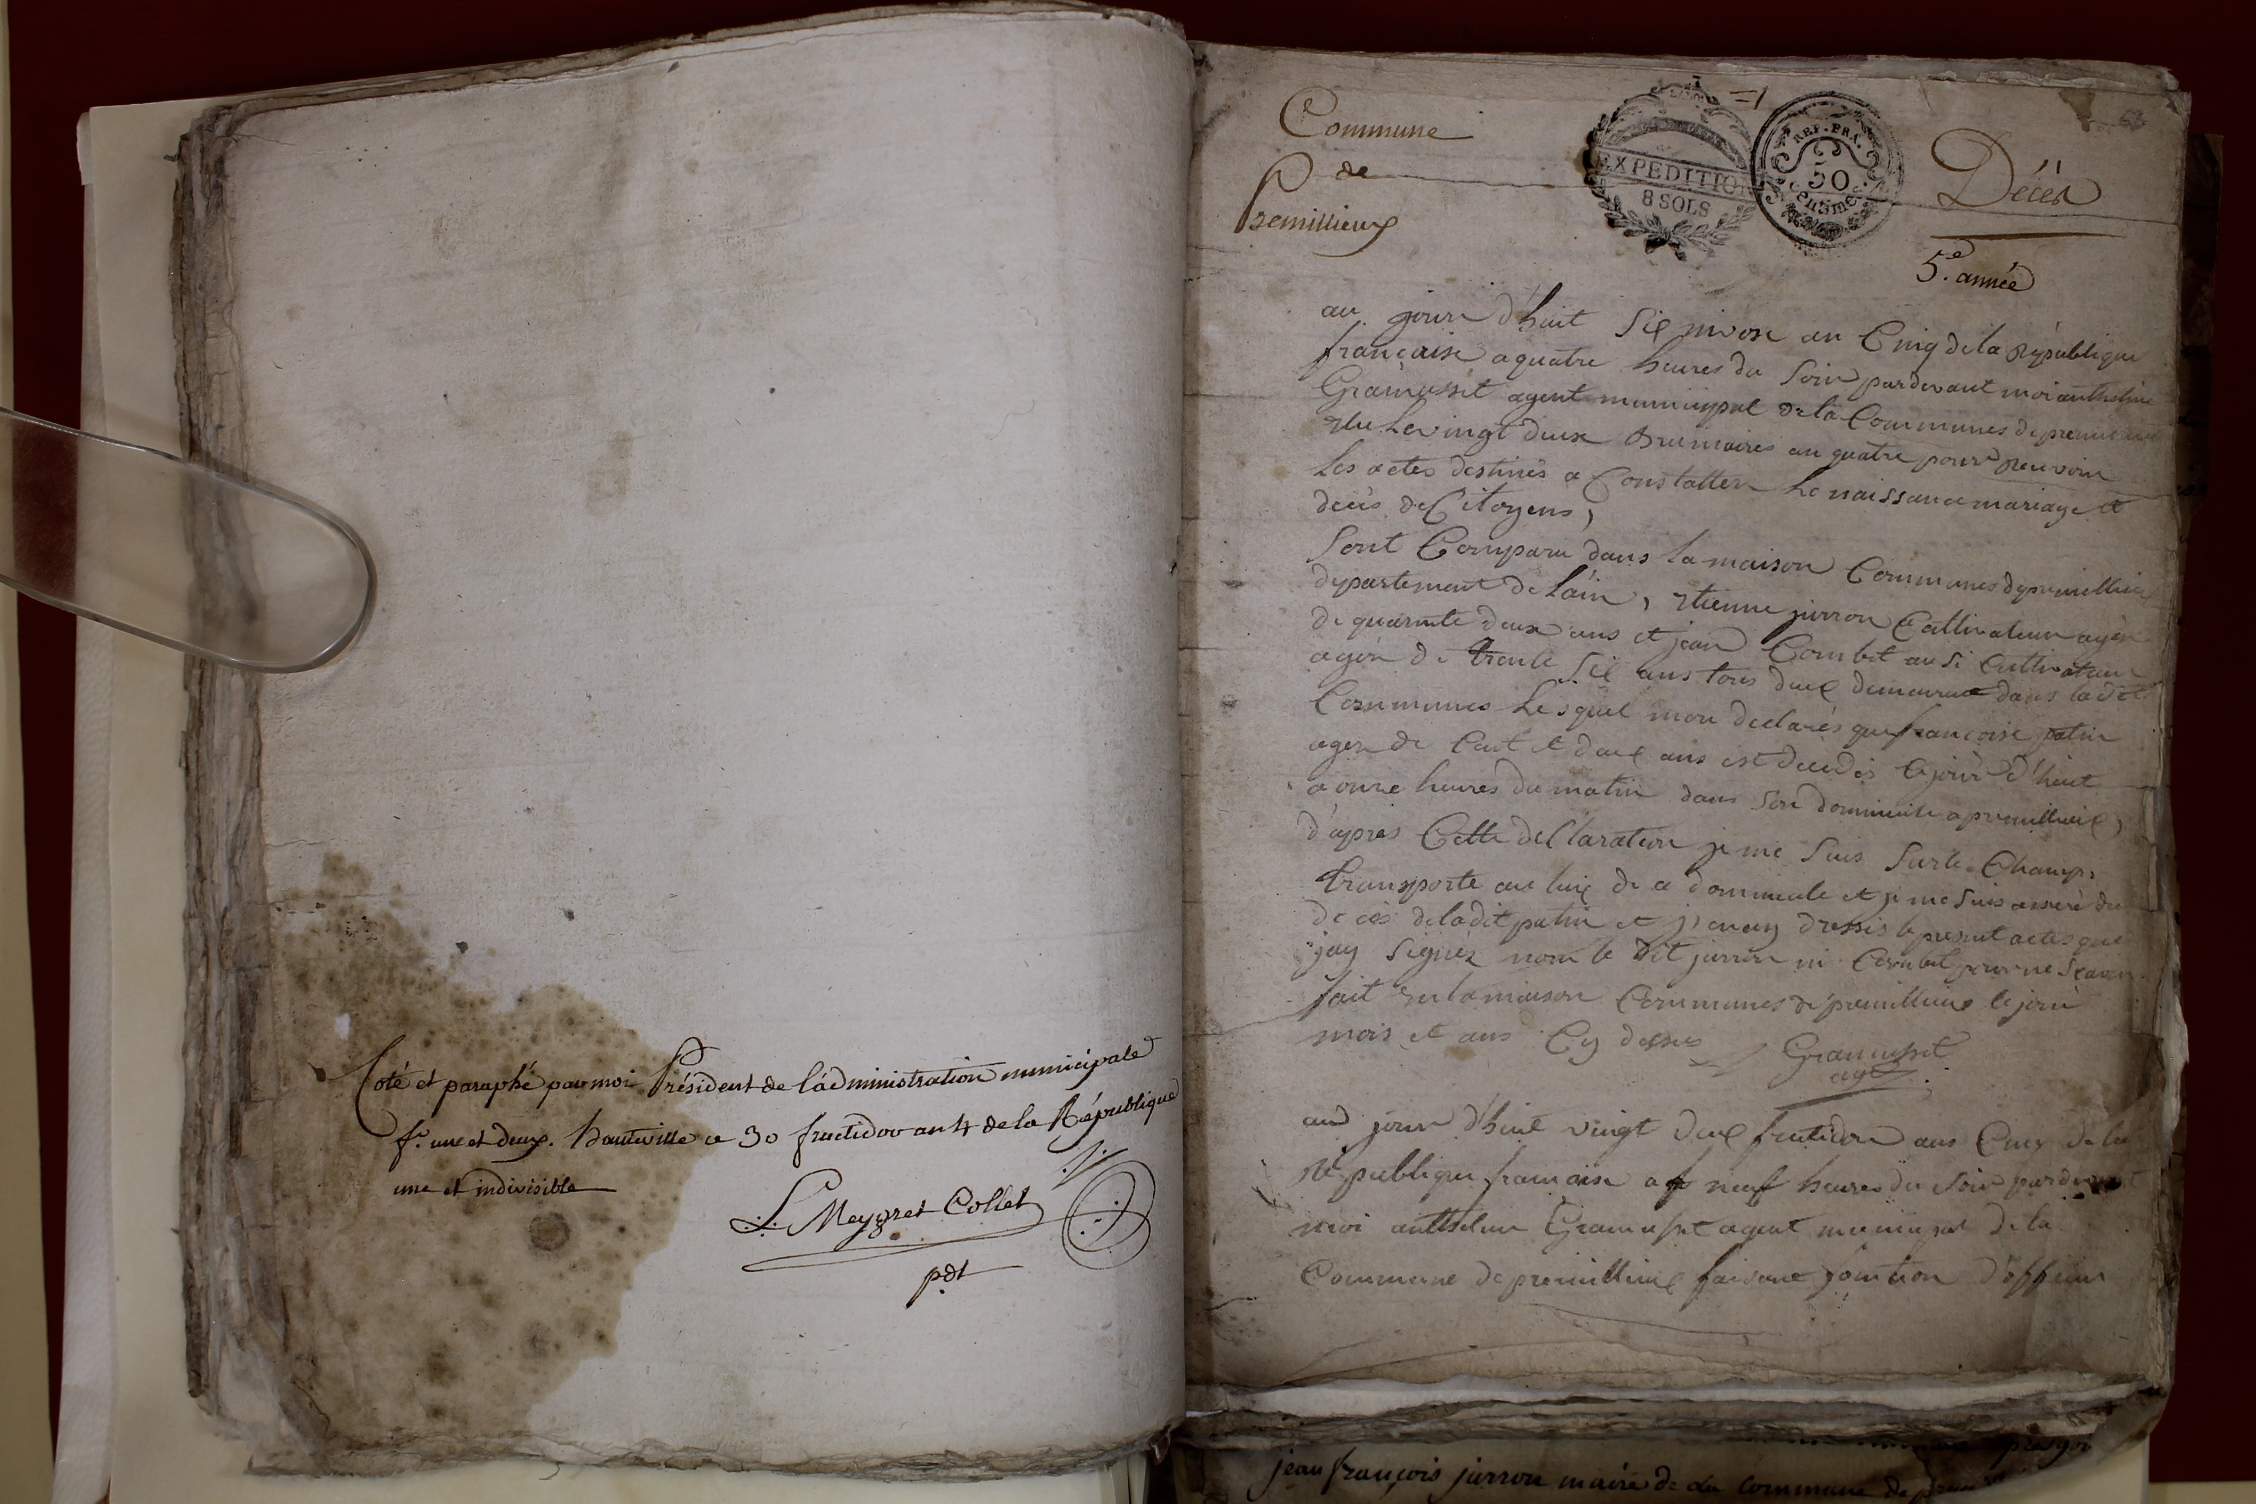 Coté et paraphé par moi Président de l'administration municipale
f.° une et deux. hauteville ce 30 fructidor an 4 de la République
une et indivisible
L. Meygret Collet
pdt
Commune
de
Premillieux
=1
EXPEDITION
8 SOLS
REP. FRA.
50
Centimes
Décès
5.e année
au jour d'huit Six nivose an Cinq de la République
française a quatre heures du Soir pardevant moi anthelme
Gramusset agent municipal de la Communes de premillieux
elu Le vingt deux Brumaires an quatre pour recevoir
Les actes destinés a Constatter La naissance mariage et
décès de Citoyens,
Sont Comparu dans la maison Communes de premillieux
departement de Lain, etienne jurron Cultivateur agér
de quarente deux ans et jean Combet ausi Cultivateur
agér de trente Six ans tous deux demeurant dans ladit
Communes Lesquel mon declarés que francoise patin
ager de Cent et deux ans est decedés Cejour d'huit
a onze heures du matin dans son dommicile a premillieux,
d'apres Cette declaration je me Suis Surle Champs
transporte au lieu de ce dommicile et je me Suis asseuré du
deces deladit patin et j'enay dressés le present actes que
jay Signéz nom le dit jurron ni Combet pour ne Scavoir
fait en la maison Communes de premillieux le jour
mois et ans Cy dessus
Gramusset
agt
au jour d'huit vingt deux frutidor ans Cinq de la
République francaise a neuf heures du Soir pardevant
moi anthelme Gramusset agent municipal de la
Commune de premillieux faisant fonction d'officier
jean françois jurron maire de La commune de